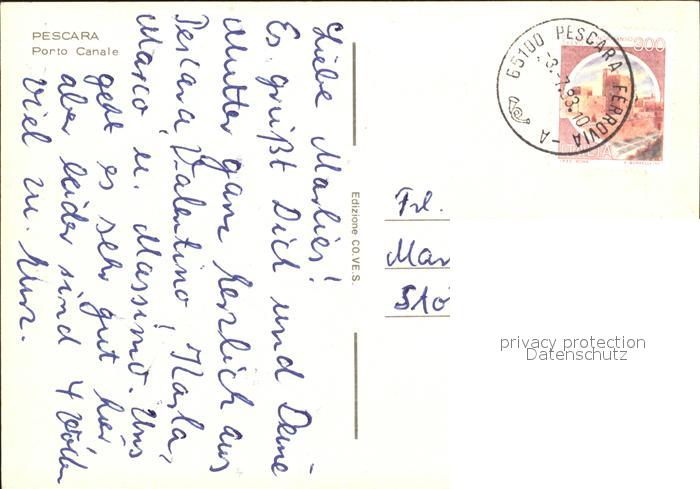 PESCARA
Porto Canale
Liebe Marlies!
Es grüßt Dich und Deine
Mutter ganz herzlich aus
Pescara Valentino, Karla,
Mario u. Massimo. Uns
geht es sehr gut hier
aber leider sind 4 Wochen
viel zu kurz.
Edizione CO.VE.S.
65100 PESCARA FERROVIA -A
-3.-7.83.10
300
ITALIA
Frl.
Mar
510
privacy protection
Datenschutz